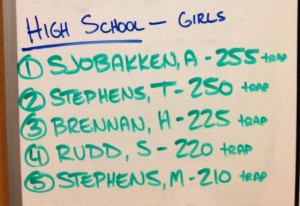 HIGH SCHOOL - GIRLS
① SJOBAKKEN, A - 255 TRAP
② STEPHENS, T - 250 TRAP
③ BRENNAN, H - 225 TRAP
④ RUDD, S - 220 TRAP
⑤ STEPHENS, M - 210 TRAP